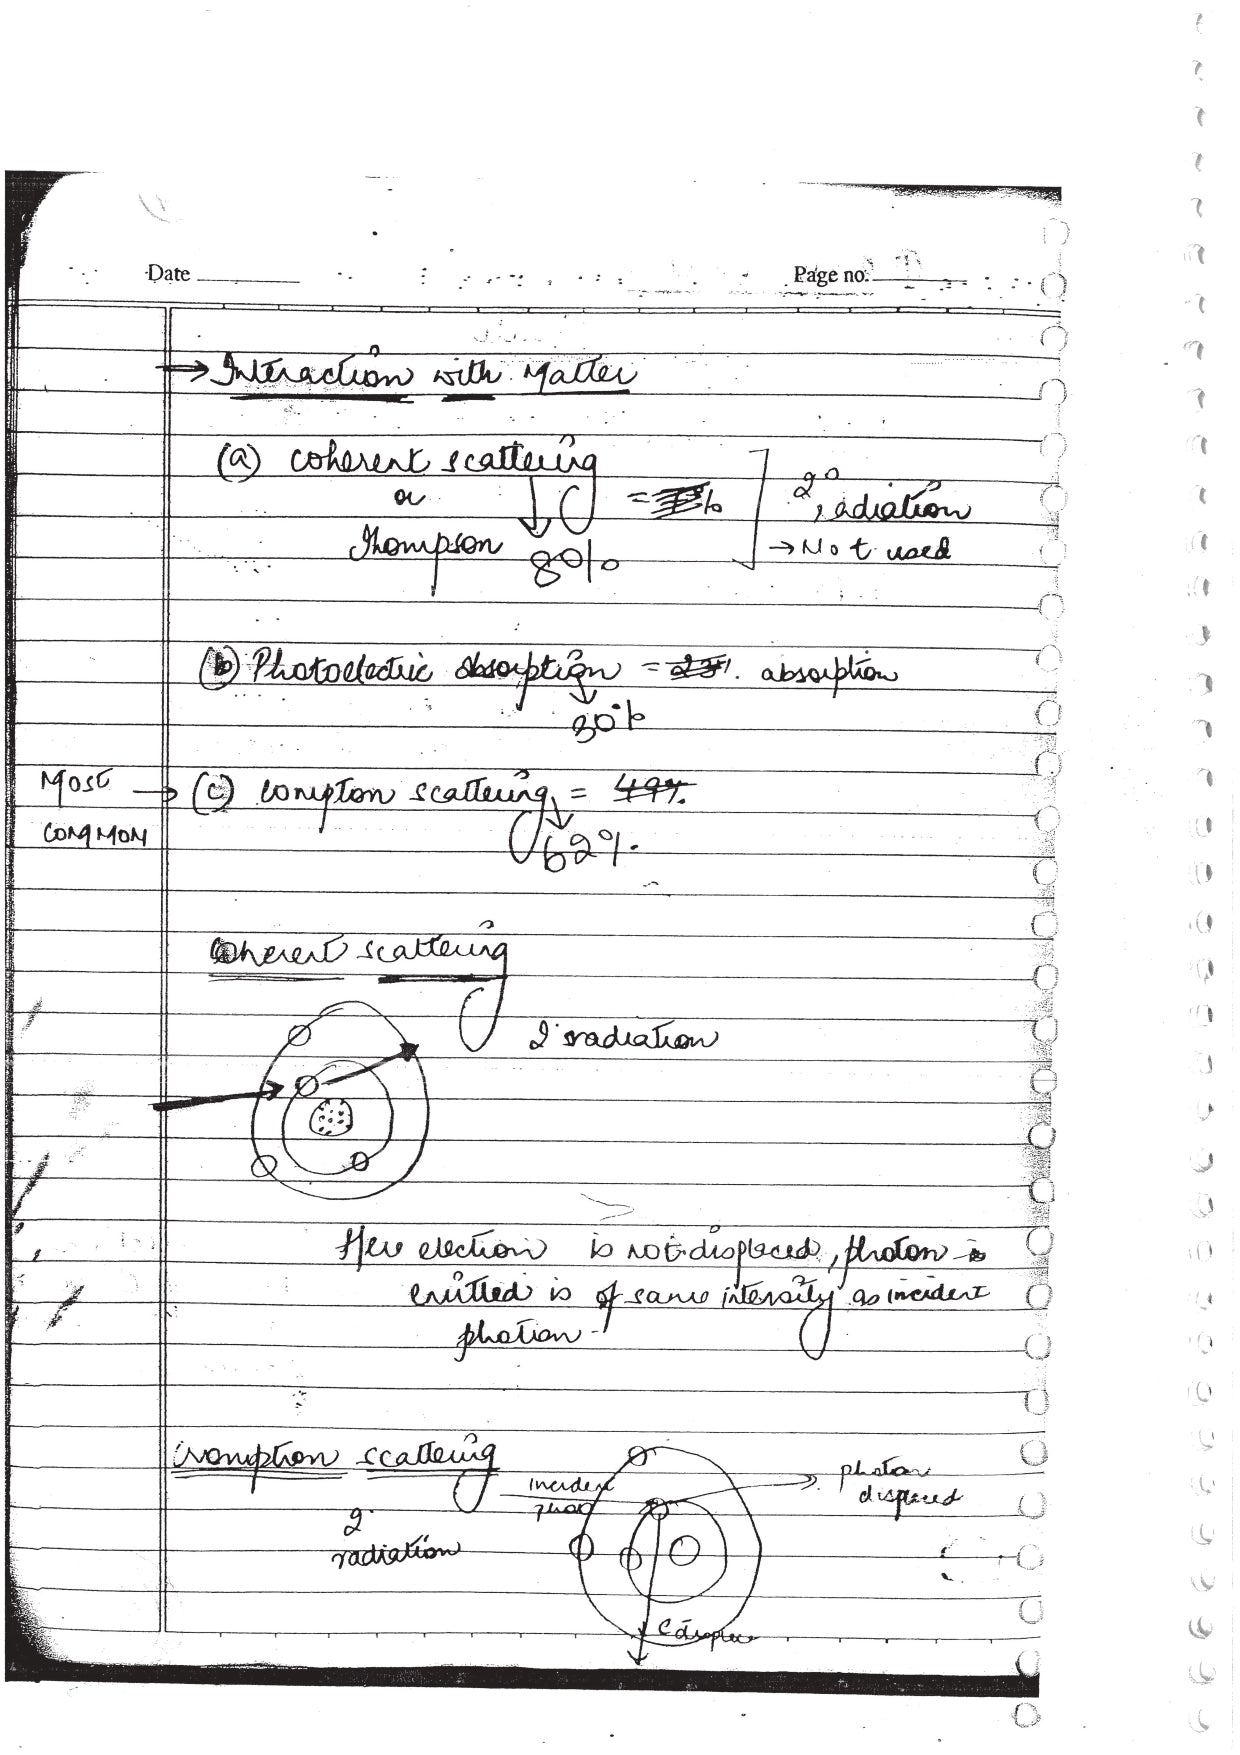 Date
Page no.
→ Interaction with Matter
(a) coherent scattering
or
Thompson 8%
2° radiation
→ Not used
(b) Photoelectric absorption = 23%. absorption
30%
Most common → (c) compton scattering = 49%.
62%.
Coherent scattering
2° radiation
Here electron is not displaced, photon is
emitted is of same intensity as incident
photon.
Compton scattering
incident
photon
displaced
2°
radiation
e displace